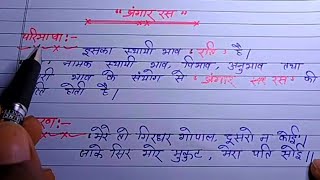 "श्रृंगार रस"
परिभाषा:-
इसका स्थायी भाव 'रति' है।
नामक स्थायी भाव, विभाव, अनुभाव तथा
भाव के संयोग से 'श्रृंगार रस' की
होती है।
मेरे तो गिरधर गोपाल, दूसरो न कोई।
जाके सिर मोर मुकुट, मेरा पति सोई॥